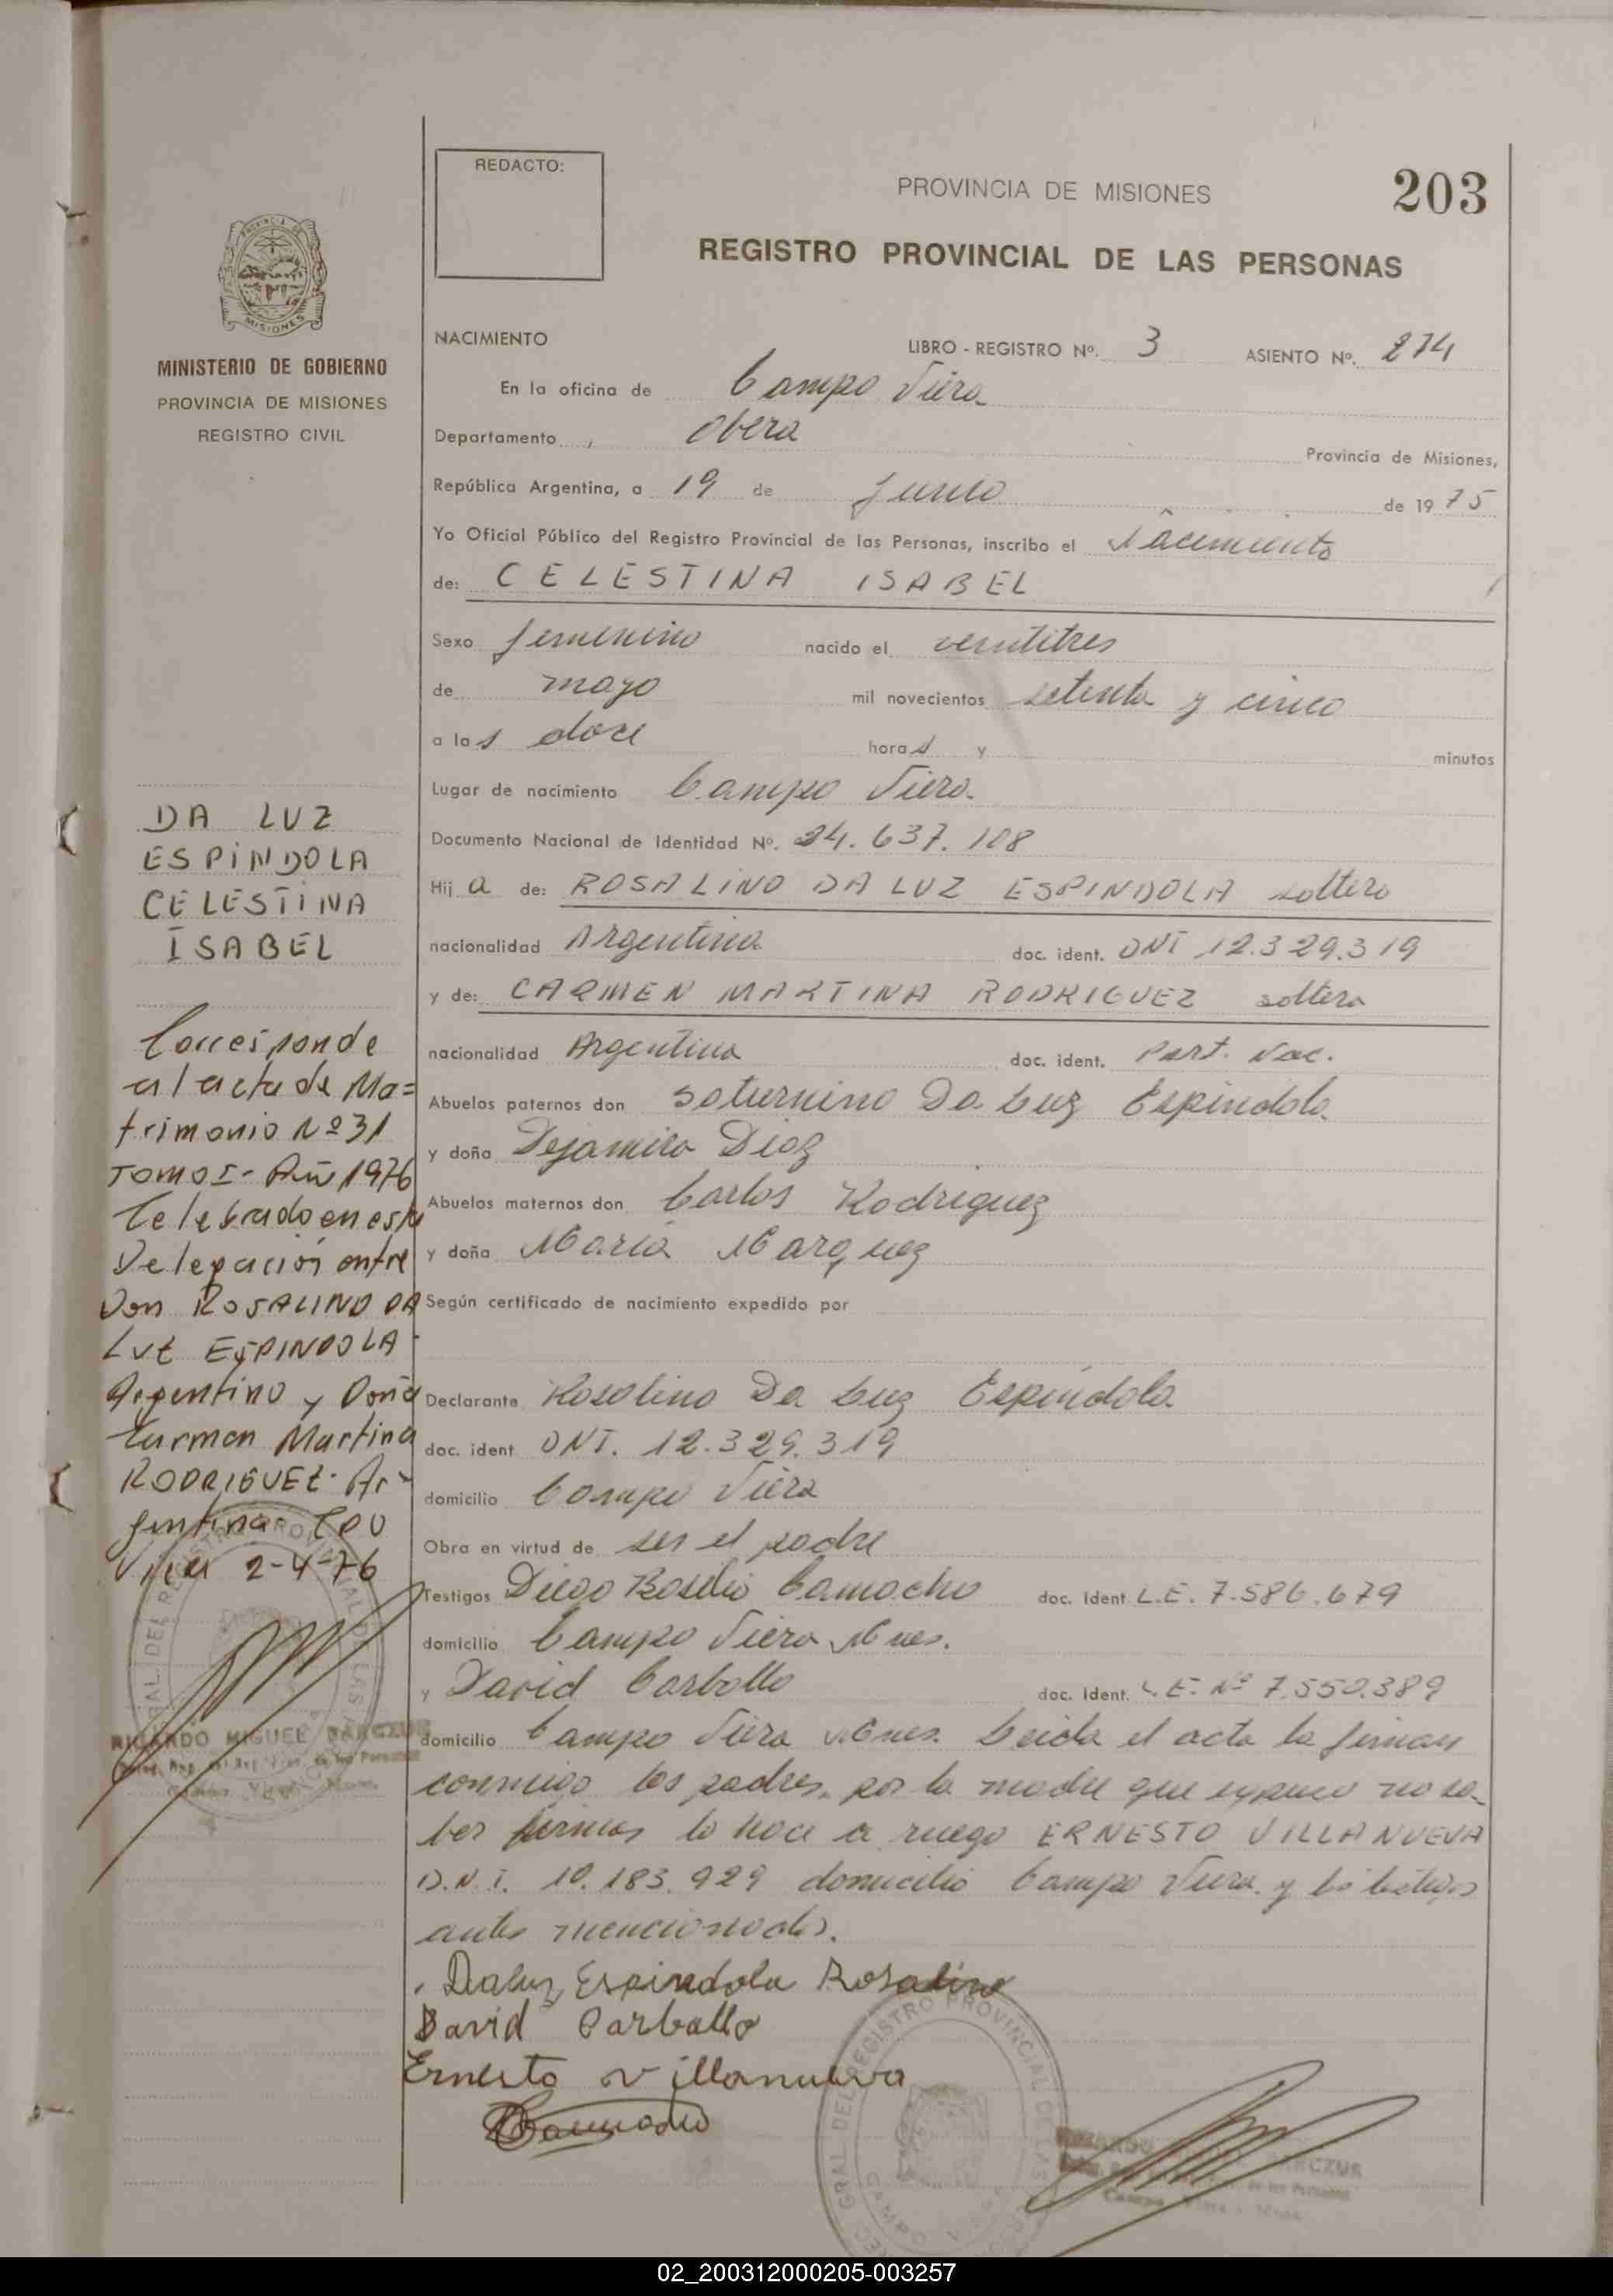 REDACTO:
PROVINCIA DE MISIONES
203
REGISTRO PROVINCIAL DE LAS PERSONAS
MISIONES
MINISTERIO DE GOBIERNO
PROVINCIA DE MISIONES
REGISTRO CIVIL
NACIMIENTO
LIBRO - REGISTRO Nº. 3 ASIENTO Nº. 274
En la oficina de Campo Viera
Departamento Obera
Provincia de Misiones,
República Argentina, a 19 de Junio de 1975
Yo Oficial Público del Registro Provincial de las Personas, inscribo el Nacimiento
de: CELESTINA ISABEL
Sexo femenino nacido el veintitres
de mayo mil novecientos setenta y cinco
a las doce horas y minutos
Lugar de nacimiento Campo Viera.
Documento Nacional de Identidad Nº. 24.637.108
Hija de: ROSALINO DA LUZ ESPINDOLA soltero
nacionalidad Argentina doc. ident. DNI 12.329.319
y de: CARMEN MARTINA RODRIGUEZ soltera
nacionalidad Argentina doc. ident. Part. Nac.
Abuelos paternos don Saturnino Da Luz Espindola
y doña Dejamira Diaz
Abuelos maternos don Carlos Rodriguez
y doña Maria Marquez
Según certificado de nacimiento expedido por
Declarante Rosalino Da Luz Espíndola
doc. ident DNI. 12.329.319
domicilio Campo Viera
Obra en virtud de ser el padre
Testigos Diego Camacho doc. Ident L.E. 7.586.679
domicilio Campo Viera Mnes.
y David Carballo doc. Ident. L.E. Nº 7.550.389
domicilio Campo Viera Mnes. Leida el acta la firman
conmigo los padres, por la madre que expuso no sa-
ber firmar lo hace a ruego ERNESTO VILLANUEVA
D.N.I. 10.183.929 domicilio Campo Viera y los testigos
antes mencionados.
Daluz Espindola Rosalino
David Carballo
Ernesto Villanueva
Camacho
DA LUZ
ESPINDOLA
CELESTINA
ISABEL
Corresponde
al acta de Ma=
trimonio Nº 31
TOMO I - Año 1976
Celebrado en esta
Delegación entre
Don ROSALINO DA
LUZ ESPINDOLA
Argentino y Doña
Carmen Martina
RODRIGUEZ - Ar-
gentina- Cpo
Viera 2-4-76
RICARDO MIGUEL BARCZUK
02_200312000205-003257